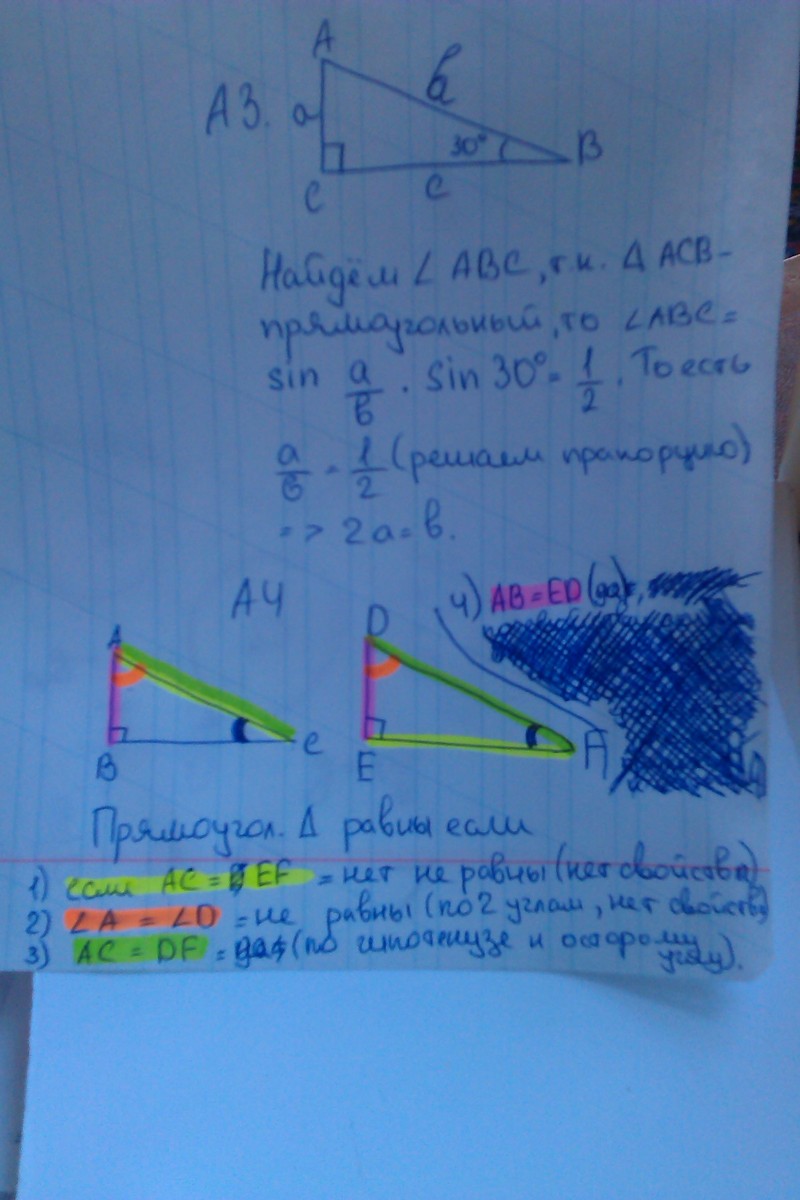 A
А3.
a
b
30°
B
C
c
Найдём ∠ ABC, т.к. Δ ACB-
прямоугольный, то ∠ABC=
sin a/b . Sin 30°= 1/2. То есть
a/b = 1/2 (решаем прапорцию)
=> 2a=b.
А4
4) AB=ED (да),
A
B
C
D
E
F
Прямоугол. Δ равны если
1) если AC = EF = нет не равны (нет свойства)
2) ∠A = ∠D = не равны (по 2 углам, нет свойств)
3) AC = DF = да (по гипотенузе и острому
углу).